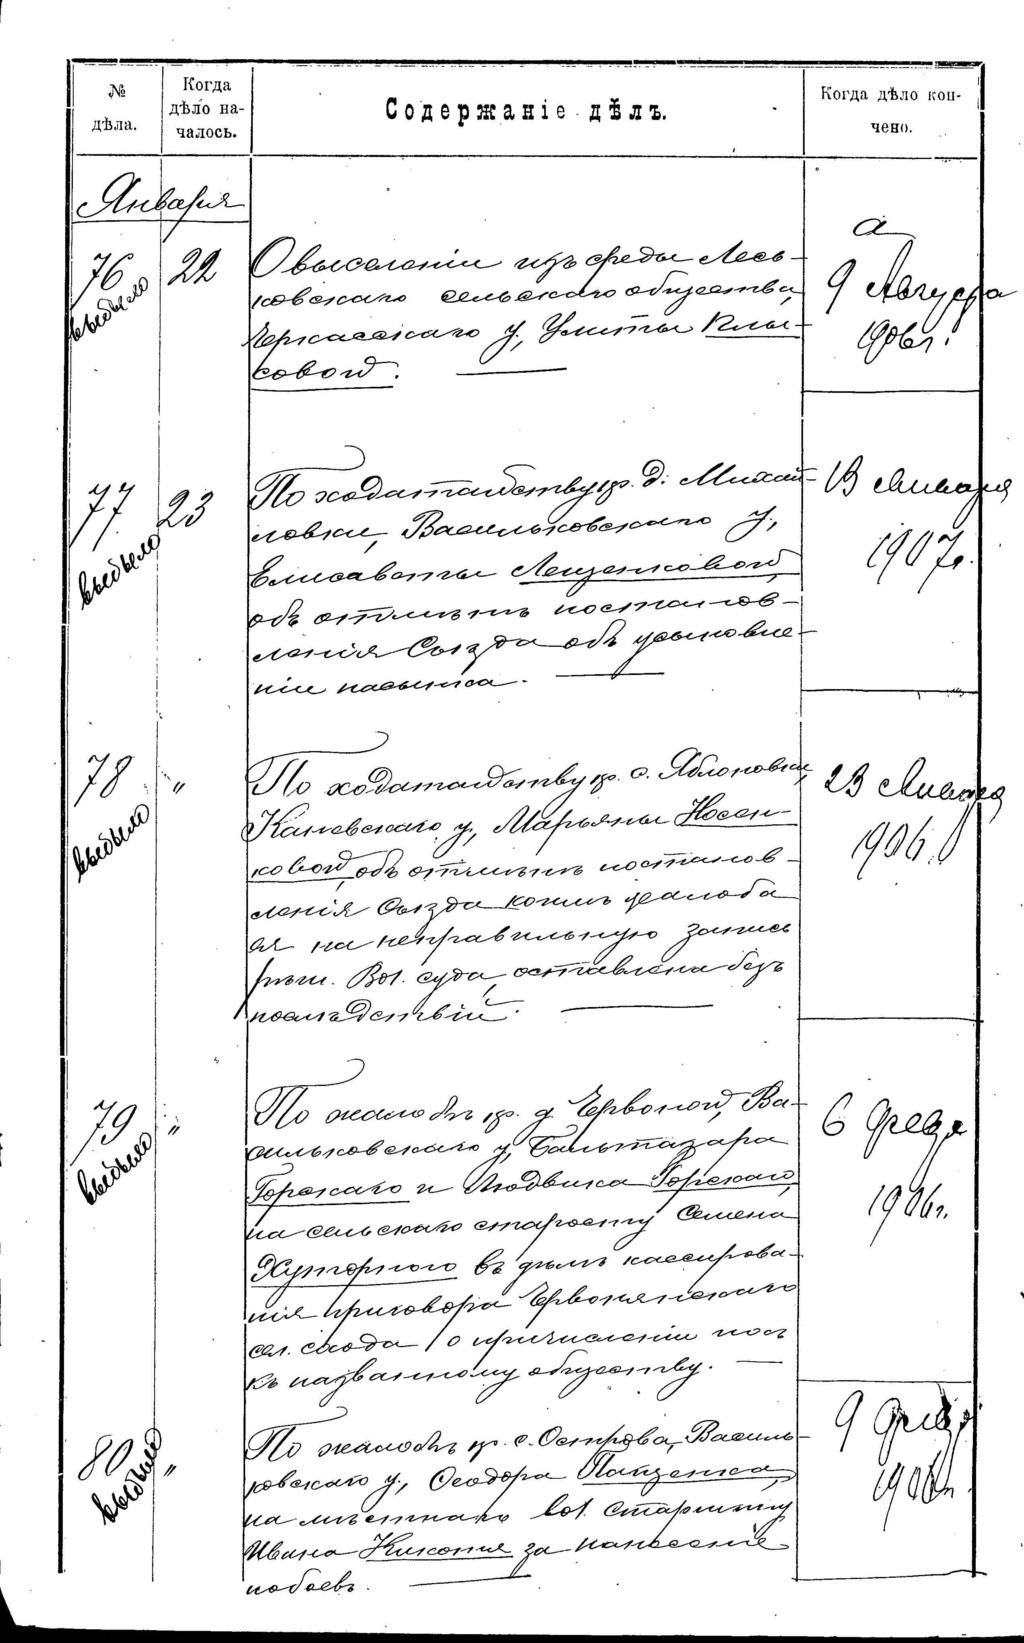 № дѣла.
Когда дѣло на-
чалось.
Содержаніе дѣлъ.
Когда дѣло кон-
чено.
Января
76
выбыло
22
О выселеніи изъ среды Лесь-
ковскаго сельскаго общества,
Черкасскаго у., Улиты Клы-
совой.
9 Августа
1906 г.
77
выбыло
23
По ходатайству кр. д. Михай-
ловки, Васильковскаго у.,
Елисаветы Лещенковой,
объ отмѣнѣ постанов-
ленія Съѣзда объ усыновле-
ніи пасынка.
13 Января
1907 г.
78
выбыло
"
По ходатайству кр. с. Яблоновки,
Каневскаго у., Марьяны Носен-
ковой, объ отмѣнѣ постанов-
ленія Съѣзда коимъ жалоба
ея на неправильную запись
рѣш. Вол. суда, оставлена безъ
послѣдствій.
23 Января
1906.
79
выбыло
"
По жалобѣ кр. д. Червоной, Ва-
сильковскаго у., Бальтазара
Горскаго и Людвика Горскаго,
на сельскаго старосту Семена
Хуторного въ дѣлѣ кассирова-
нія приговора Червонянскаго
сел. схода о причисленіи ихъ
къ названному обществу.
6 Февр
1906 г.
80
выбыло
"
По жалобѣ кр. с. Острова, Василь-
ковскаго у., Ѳеодора Панченка,
на мѣстнаго вол. старшину
Ивана Кикотя за нанесеніе
побоевъ.
9 Февр
1906 г.